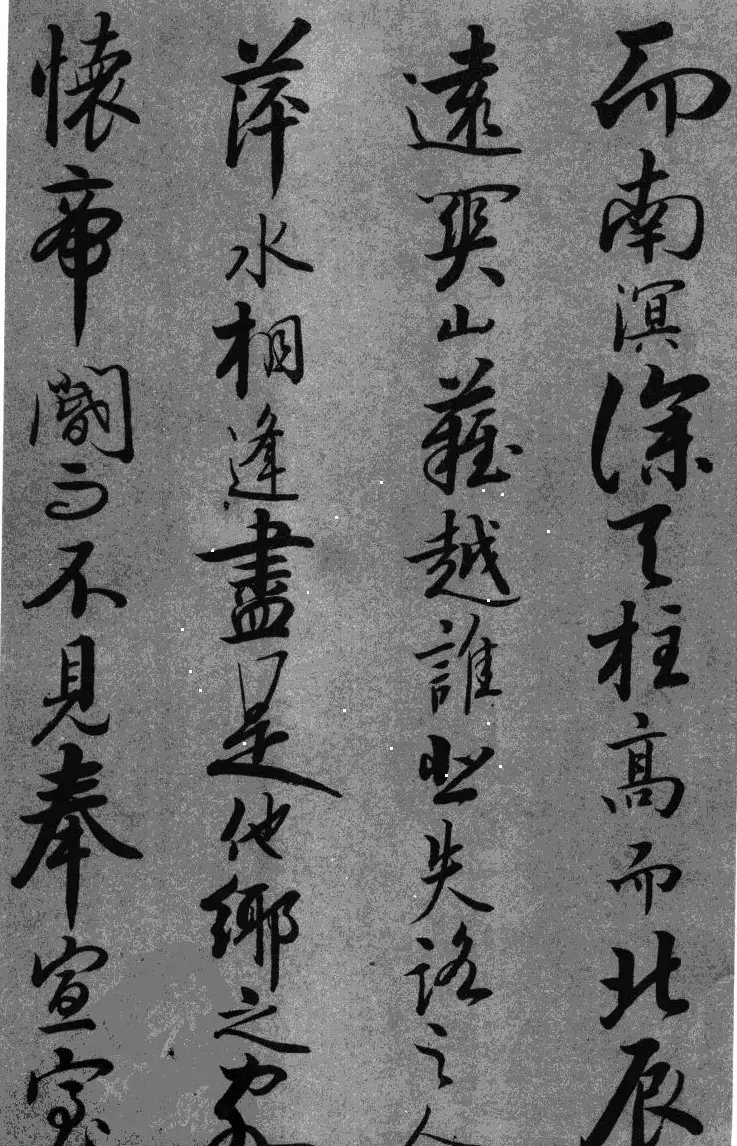 而南溟深天柱高而北辰
遠關山難越誰悲失路之人
萍水相逢盡是他鄉之客
懷帝閽而不見奉宣室